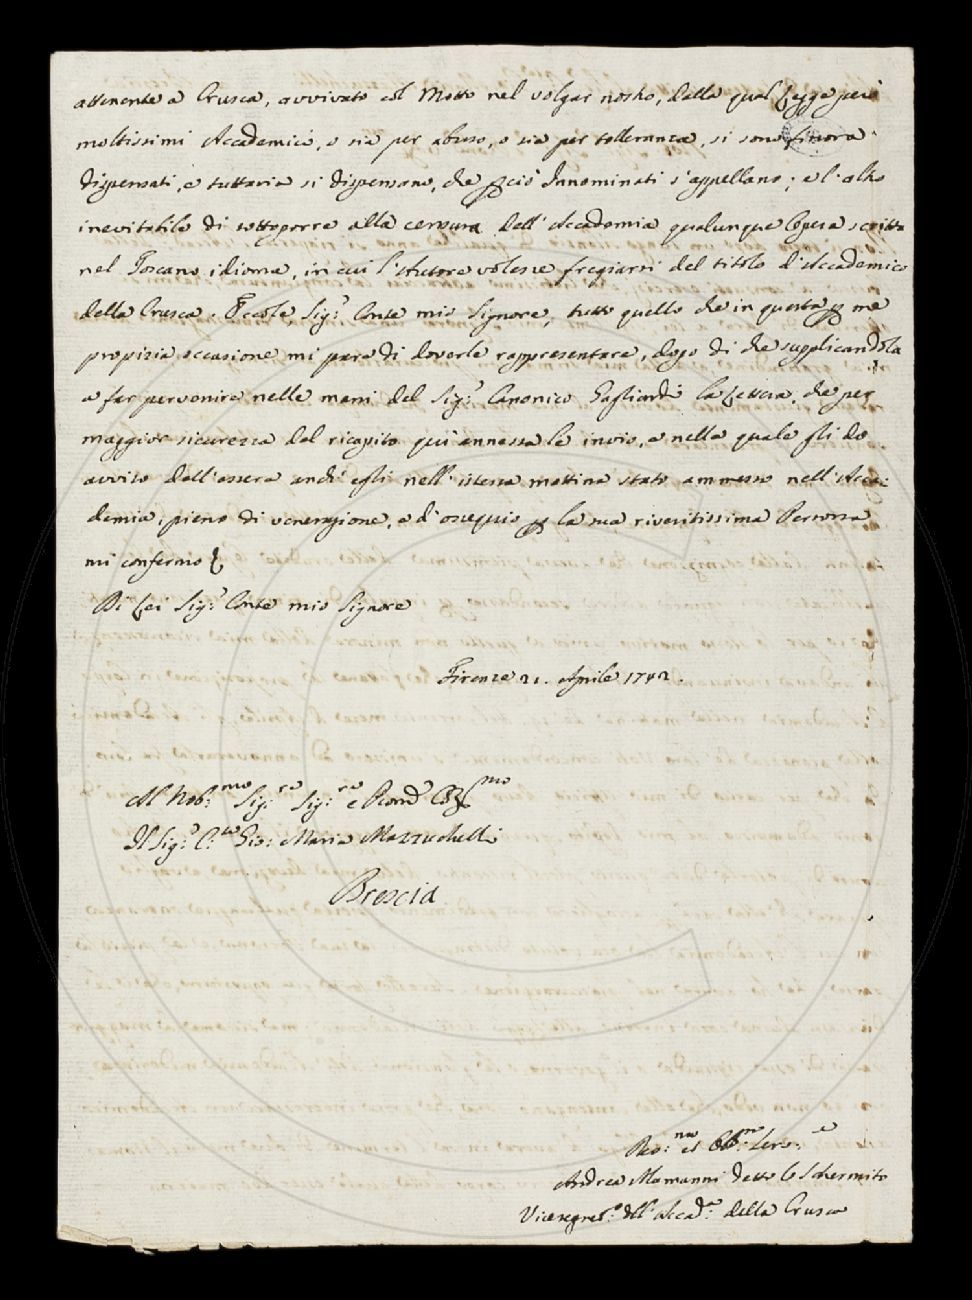 attenente a Crusca, avvivato col Motto nel volgar nostro, dalla qual Legge però
moltissimi Accademici, o sia per abuso, o sia per tolleranza, si sono finora
dispensati, e tuttavia si dispensano, che p ciò Innominati s'appellano; e l'altro
inevitabile di sottoporre alla censura dell'Accademia qualunque Opera scritta
nel Toscano idioma, in cui l'Autore volesse fregiarsi del titolo d'Accademico
della Crusca. Eccole Sig.r Conte mio Signore, tutto quello che in questa p me
propizia occasione mi pare di doverle rappresentare, dopo di che supplicandola
a far pervenire nelle mani del Sig.r Canonico Gagliardi la Lettera, che per
maggior sicurezza del ricapito quì annessa le invio, e nella quale gli do
avviso dell'essere anch'egli nell'istessa mattina stato ammesso nell'Acca-
demia, pieno di venerazione, e d'ossequio p la sua riveritissima Persona
mi confermo
Di Lei Sig.r Conte mio Signore
Firenze 21. Aprile 1742.
All' Nob.mo Sig.re Sig.re e Pron
Il Sig.r C.te Gio: Maria Mazzuchelli
Brescia
Dev.mo et Obb.mo Serv.e
Andrea Alamanni detto lo Schermito
Vicesegret.o dell'Accad.a della Crusca